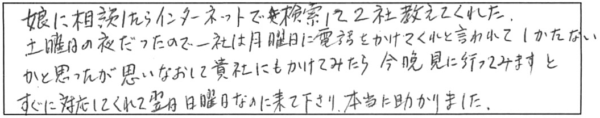 娘に相談したらインターネットで検索して2社教えてくれた。
土曜日の夜だったので一社は月曜日に電話をかけてくれと言われてしかたない
かと思ったが思いなおして貴社にもかけてみたら今晩見に行ってみますと
すぐに対応してくれて翌日日曜日なのに来て下さり、本当に助かりました。